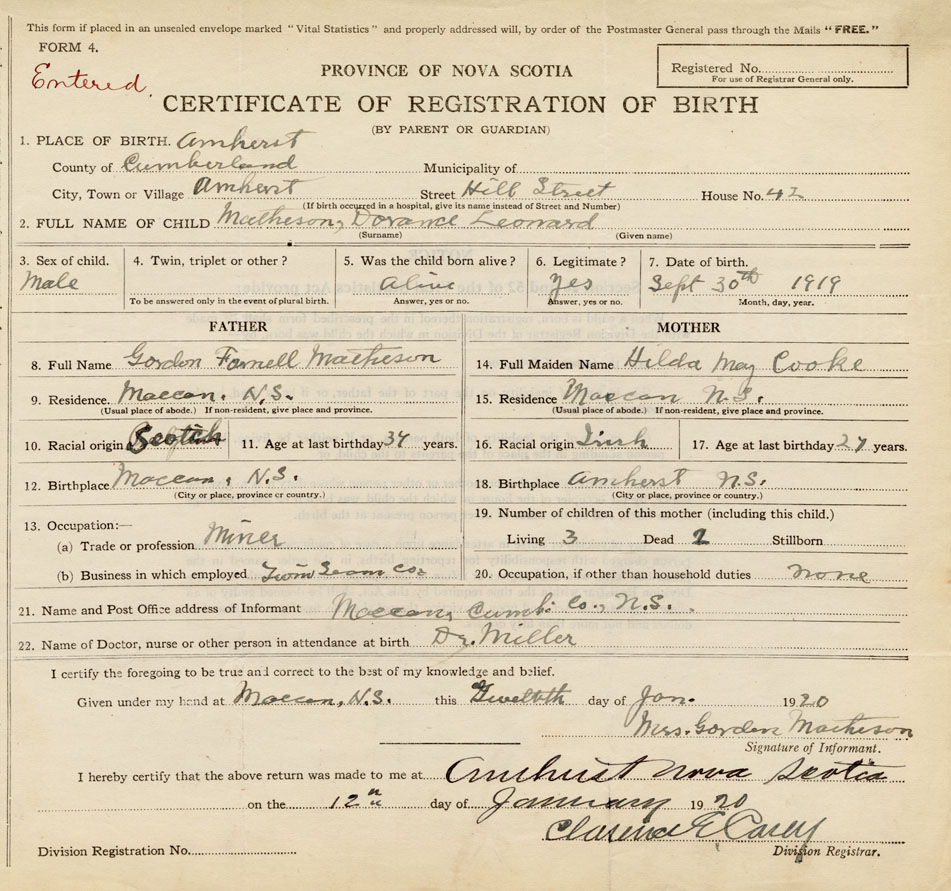 This form if placed in an unsealed envelope marked "Vital Statistics" and properly addressed will, by order of the Postmaster General pass through the Mails "FREE."
FORM 4.
Entered.
PROVINCE OF NOVA SCOTIA
Registered No.
For use of Registrar General only.
CERTIFICATE OF REGISTRATION OF BIRTH
(BY PARENT OR GUARDIAN)
1. PLACE OF BIRTH. Amherst
County of Cumberland Municipality of
City, Town or Village Amherst Street Hill Street House No. 42
(If birth occurred in a hospital, give its name instead of Street and Number)
2. FULL NAME OF CHILD Matheson, Dorance Leonard
(Surname) (Given name)
3. Sex of child. 4. Twin, triplet or other? 5. Was the child born alive? 6. Legitimate? 7. Date of birth.
Male Alive Yes Sept 30th 1919
To be answered only in the event of plural birth. Answer, yes or no. Answer, yes or no. Month, day, year.
FATHER MOTHER
8. Full Name Gordon Farnell Matheson 14. Full Maiden Name Hilda May Cooke
9. Residence. Maccan, N.S. 15. Residence Maccan N.S.
(Usual place of abode.) If non-resident, give place and province. (Usual place of abode.) If non-resident, give place and province.
10. Racial origin Scotch 11. Age at last birthday 34 years. 16. Racial origin Irish 17. Age at last birthday 27 years.
12. Birthplace Maccan, N.S. 18. Birthplace Amherst N.S.
(City or place, province or country.) (City or place, province or country.)
13. Occupation:— 19. Number of children of this mother (including this child.)
(a) Trade or profession Miner Living 3 Dead Stillborn
(b) Business in which employed Twin Seam Co. 20. Occupation, if other than household duties none
21. Name and Post Office address of Informant Maccan, Cumb. Co., N.S.
22. Name of Doctor, nurse or other person in attendance at birth Dr. Miller
I certify the foregoing to be true and correct to the best of my knowledge and belief.
Given under my hand at Maccan, N.S. this Twelfth day of Jan. 1920
Mrs. Gordon Matheson
Signature of Informant.
I hereby certify that the above return was made to me at Amhurst Nova Scotia
on the 12th day of January 1920
Clarence E Casey
Division Registration No. Division Registrar.